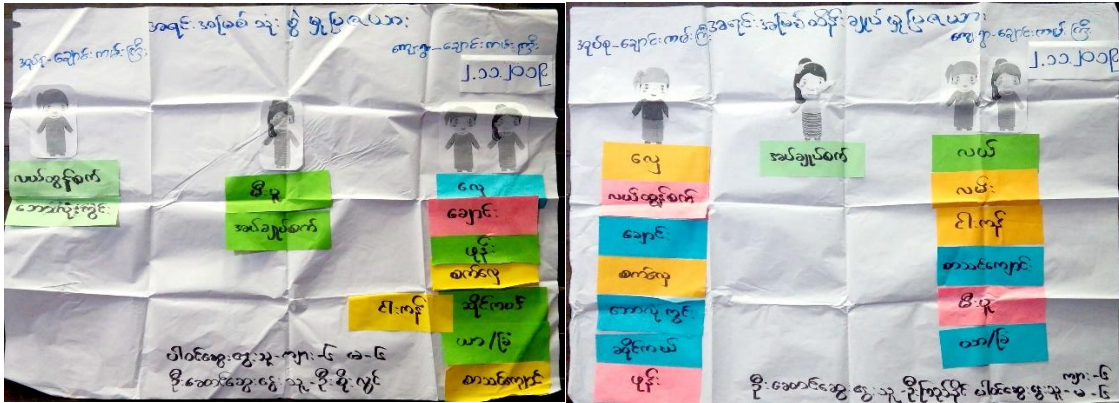 အရင်းအမြစ်သုံးစွဲမှုပြဇယား
အုပ်စု-ချောင်းကမ်းကြီး
ကျေးရွာ-ချောင်းကမ်းကြီး
၂.၁၁.၂၀၁၉
လယ်ထွန်စက်
ဘောလုံးကွင်း
မီးပူ
အပ်ချုပ်စက်
လှေ
ချောင်း
ဖုန်း
စက်လှေ
ငါးကန်
ဆိုင်ကယ်
ယာ/ခြံ
စာသင်ကျောင်း
ပါဝင်ဆွေးနွေးသူ-ကျား-၆ မ-၆
ဦးဆောင်ဆွေးနွေးသူ-ဦးစိုးလွင်
အရင်းအမြစ်ထိန်းချုပ်မှုပြဇယား
အုပ်စု-ချောင်းကမ်းကြီး
ကျေးရွာ-ချောင်းကမ်းကြီး
၂.၁၁.၂၀၁၉
လှေ
လယ်ထွန်စက်
ချောင်း
စက်လှေ
ဘောလုံကွင်း
ဆိုင်ကယ်
ဖုန်း
အပ်ချုပ်စက်
လယ်
လမ်း
ငါးကန်
စာသင်ကျောင်း
မီးပူ
ယာ/ခြံ
ဦးဆောင်ဆွေးနွေးသူ ပါဝင်ဆွေးနွေးသူ-ကျား-၆
မ-၆